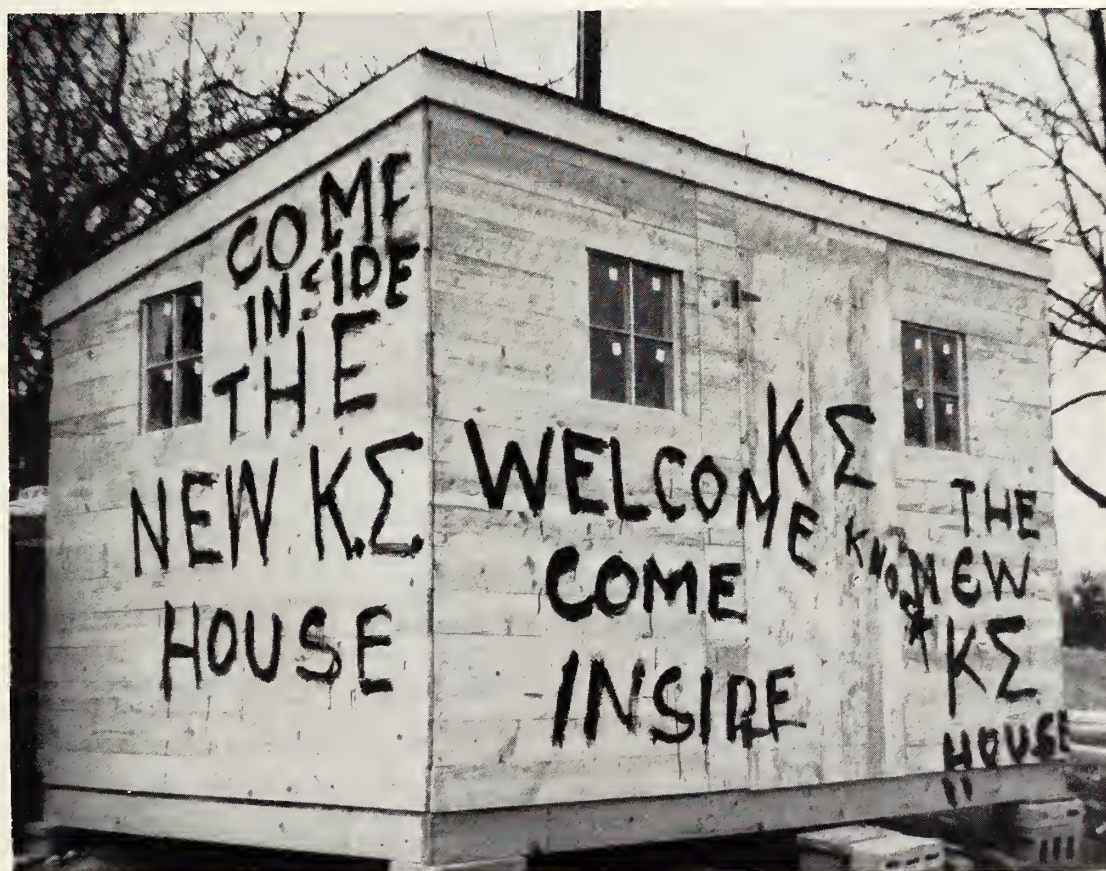 COME
INSIDE
THE
NEW ΚΣ
HOUSE
WELCOME ΚΣ
COME
INSIDE
KNOCK
THE
NEW
ΚΣ
HOUSE